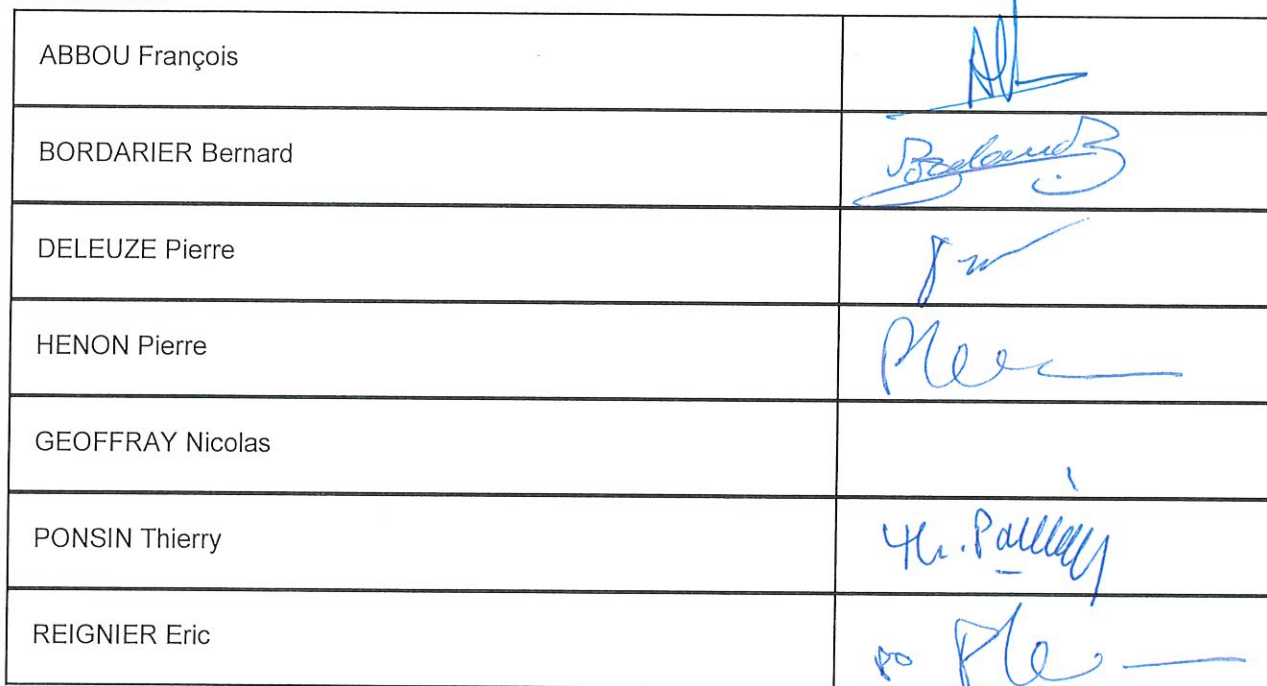 ABBOU François
BORDARIER Bernard
DELEUZE Pierre
HENON Pierre
GEOFFRAY Nicolas
PONSIN Thierry
Th.
REIGNIER Eric
po